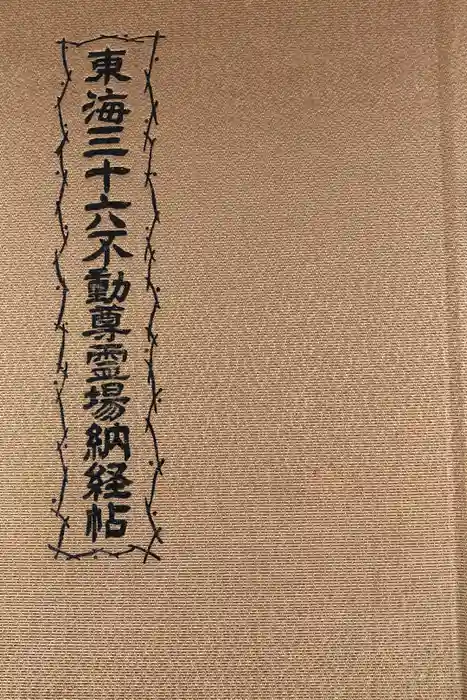 東海三十六不動尊霊場納経帖